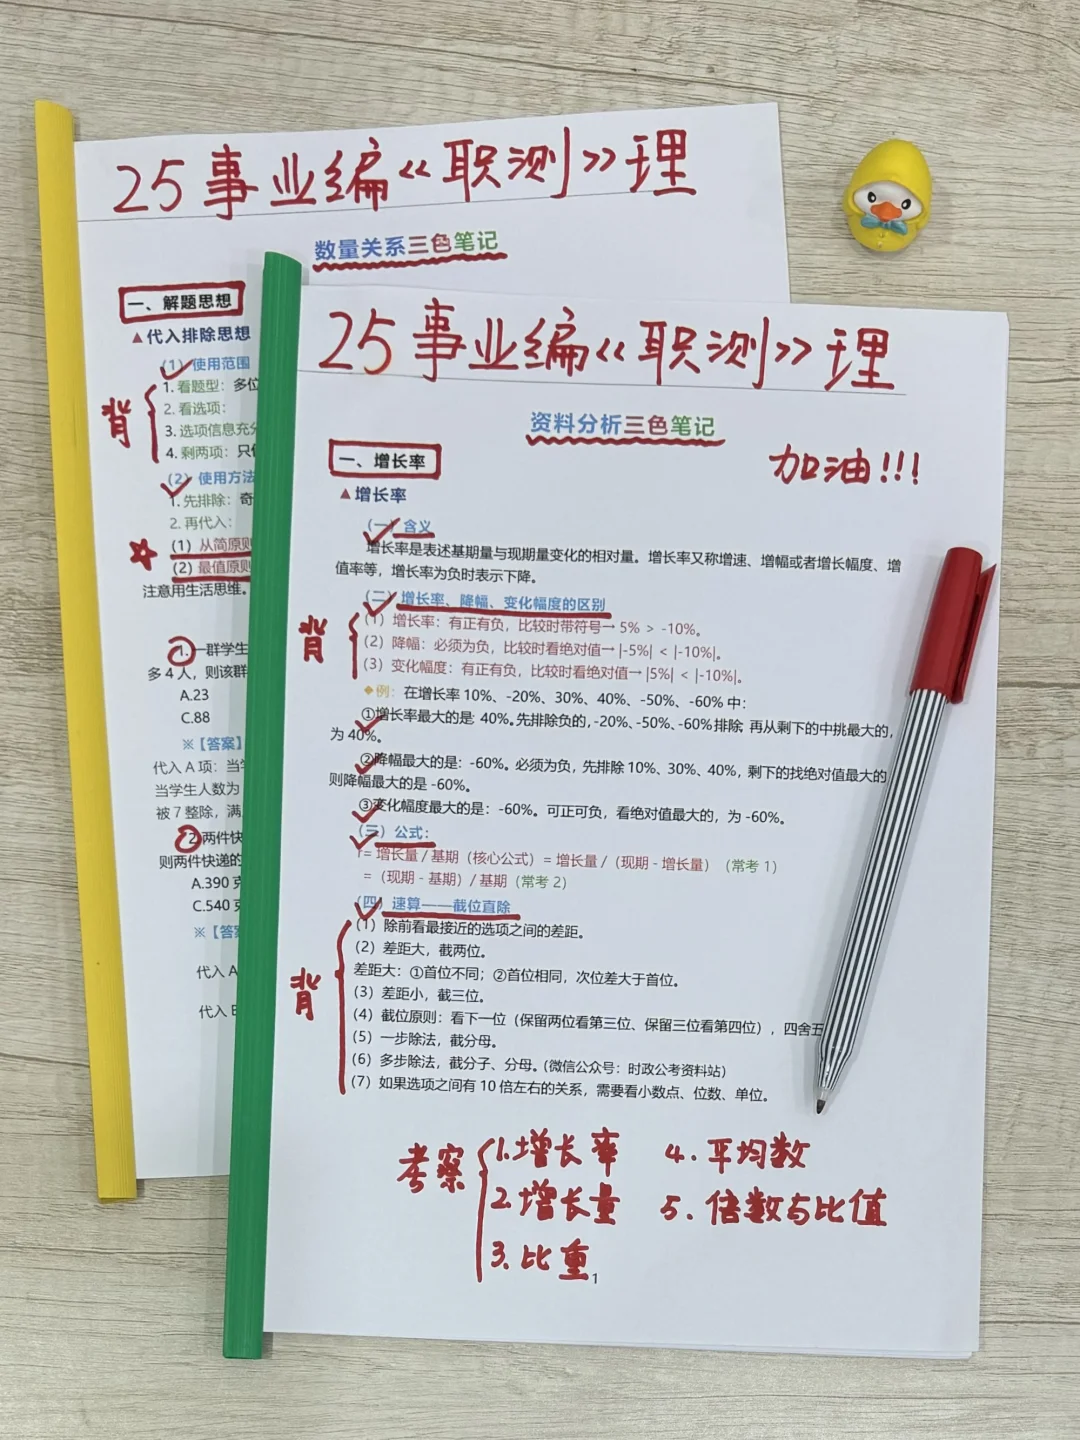 25事业编《职测》理
数量关系三色笔记
一、解题思想
▲代入排除思想
（1）使用范围
背
1. 看题型：多位
2. 看选项：
3. 选项信息充分
4. 剩两项：只
（2）使用方法
1. 先排除：奇
2. 再代入：
（1）从简原则
（2）最值原则
注意用生活思维。
1. 一群学生
多 4 人，则该群
A.23
C.88
※【答案】
代入 A 项：当
当学生人数为
被 7 整除，满
2. 两件快
则两件快递的
A.390 克
C.540 克
※【答案
代入 A
代入
25事业编《职测》理
资料分析三色笔记
加油!!!
一、增长率
▲增长率
（一）含义
增长率是表述基期量与现期量变化的相对量。增长率又称增速、增幅或者增长幅度、增
值率等，增长率为负时表示下降。
（二）增长率、降幅、变化幅度的区别
背
（1）增长率：有正有负，比较时带符号→ 5% > -10%。
（2）降幅：必须为负，比较时看绝对值→ |-5%| < |-10%|。
（3）变化幅度：有正有负，比较时看绝对值→ |5%| < |-10%|。
◆例：在增长率 10%、-20%、30%、40%、-50%、-60% 中：
①增长率最大的是 40%。先排除负的，-20%、-50%、-60% 排除，再从剩下的中挑最大的，
为 40%。
②降幅最大的是：-60%。必须为负，先排除 10%、30%、40%，剩下的找绝对值最大的
则降幅最大的是 -60%。
③变化幅度最大的是：-60%。可正可负，看绝对值最大的，为 -60%。
（三）公式：
r= 增长量 / 基期（核心公式）= 增长量 /（现期 - 增长量）（常考 1）
=（现期 - 基期）/ 基期（常考 2）
（四）速算——截位直除
背
（1）除前看最接近的选项之间的差距。
（2）差距大，截两位。
差距大：①首位不同；②首位相同，次位差大于首位。
（3）差距小，截三位。
（4）截位原则：看下一位（保留两位看第三位、保留三位看第四位），四舍五
（5）一步除法，截分母。
（6）多步除法，截分子、分母。（微信公众号：时政公考资料站）
（7）如果选项之间有 10 倍左右的关系，需要看小数点、位数、单位。
考察
1. 增长率
2. 增长量
3. 比重
4. 平均数
5. 倍数与比值
1